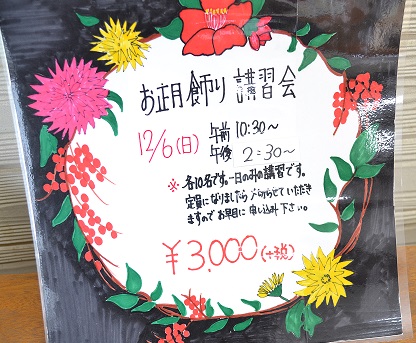 お正月飾り講習会
12/6(日) 午前 10:30〜
午後 2:30〜
※各10名です。一日のみの講習です。
定員になりましたら〆切らせていただき
ますのでお早目に申し込み下さい。
¥3,000(+税)